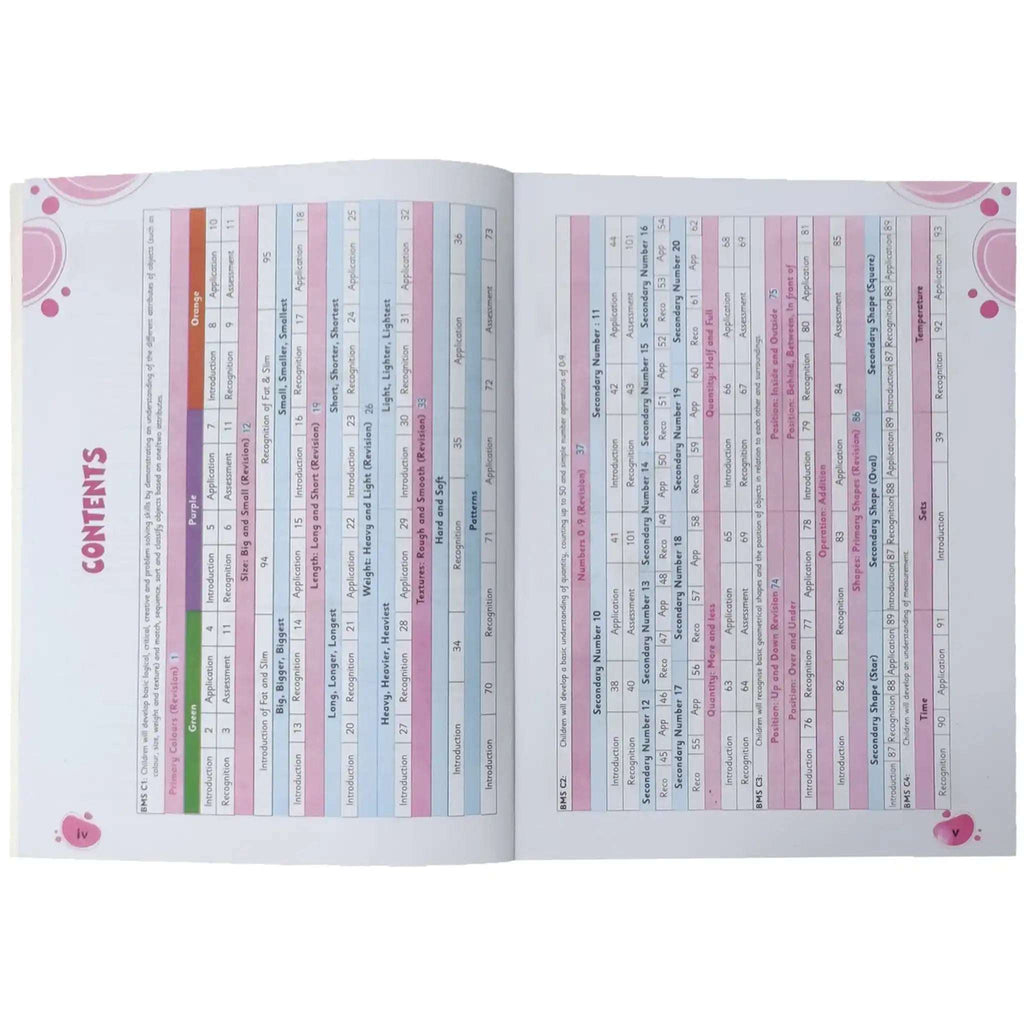 CONTENTS
BMS C1: Children will develop basic logical, critical, creative and problem solving skills by demonstrating an understanding of the different attributes of objects (such as
colour, size, weight and texture) and match, sequence, sort and classify objects based on one/two attributes.
Primary Colours (Revision) 1
Green Purple Orange
Introduction 2 Application 4 Introduction 5 Application 7 Introduction 8 Application 10
Recognition 3 Assessment 11 Recognition 6 Assessment 11 Recognition 9 Assessment 11
Size: Big and Small (Revision) 12
Introduction of Fat and Slim 94 Recognition of Fat & Slim 95
Big, Bigger, Biggest Small, Smaller, Smallest
Introduction 13 Recognition 14 Application 15 Introduction 16 Recognition 17 Application 18
Length: Long and Short (Revision) 19
Long, Longer, Longest Short, Shorter, Shortest
Introduction 20 Recognition 21 Application 22 Introduction 23 Recognition 24 Application 25
Weight: Heavy and Light (Revision) 26
Heavy, Heavier, Heaviest Light, Lighter, Lightest
Introduction 27 Recognition 28 Application 29 Introduction 30 Recognition 31 Application 32
Textures: Rough and Smooth (Revision) 33
Hard and Soft
Introduction 34 Recognition 35 Application 36
Patterns
Introduction 70 Recognition 71 Application 72 Assessment 73
iv
BMS C2: Children will develop a basic understanding of quantity, counting up to 50 and simple number operations of 0-9.
Numbers 0-9 (Revision) 37
Secondary Number 10 Secondary Number : 11
Introduction 38 Application 41 Introduction 42 Application 44
Recognition 40 Assessment 101 Recognition 43 Assessment 101
Secondary Number 12 Secondary Number 13 Secondary Number 14 Secondary Number 15 Secondary Number 16
Reco 45 App 46 Reco 47 App 48 Reco 49 App 50 Reco 51 App 52 Reco 53 App 54
Secondary Number 17 Secondary Number 18 Secondary Number 19 Secondary Number 20
Reco 55 App 56 Reco 57 App 58 Reco 59 App 60 Reco 61 App 62
Quantity: More and less Quantity: Half and Full
Introduction 63 Application 65 Introduction 66 Application 68
Recognition 64 Assessment 69 Recognition 67 Assessment 69
BMS C3: Children will recognise basic geometrical shapes and the position of objects in relation to each other and surroundings.
Position: Up and Down Revision 74 Position: Inside and Outside 75
Position: Over and Under Position: Behind, Between, In front of
Introduction 76 Recognition 77 Application 78 Introduction 79 Recognition 80 Application 81
Operation: Addition
Introduction 82 Recognition 83 Application 84 Assessment 85
Shapes: Primary Shapes (Revision) 86
Secondary Shape (Star) Secondary Shape (Oval) Secondary Shape (Square)
Introduction 87 Recognition 88 Application 89 Introduction 87 Recognition 88 Application 89 Introduction 87 Recognition 88 Application 89
BMS C4: Children will develop an understanding of measurement.
Time Sets Temperature
Recognition 90 Application 91 Introduction 39 Recognition 92 Application 93
v